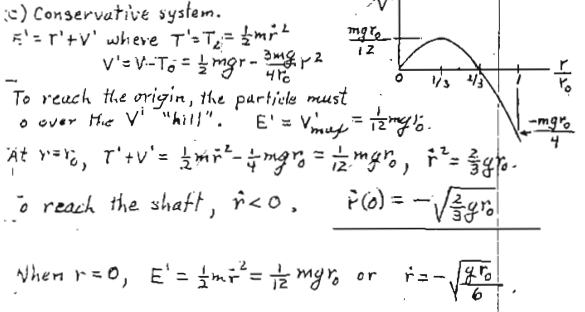 c) Conservative system.
E' = T' + V' where T' = T₂ = ½mṙ²
V' = V - T₀ = ½mgr - 3mg/4r₀ r²
To reach the origin, the particle must
o over the V' "hill". E' = V'max = 1/12 mgr₀.
At r=r₀, T'+V' = ½mṙ² - ¼mgr₀ = 1/12 mgr₀, ṙ² = ⅔gr₀.
To reach the shaft, ṙ<0, ṙ(0) = -√(⅔gr₀)
When r=0, E' = ½mṙ² = 1/12 mgr₀ or ṙ = -√(gr₀/6).
V
mgr₀/12
0 1/3 2/3 1 r/r₀
-mgr₀/4